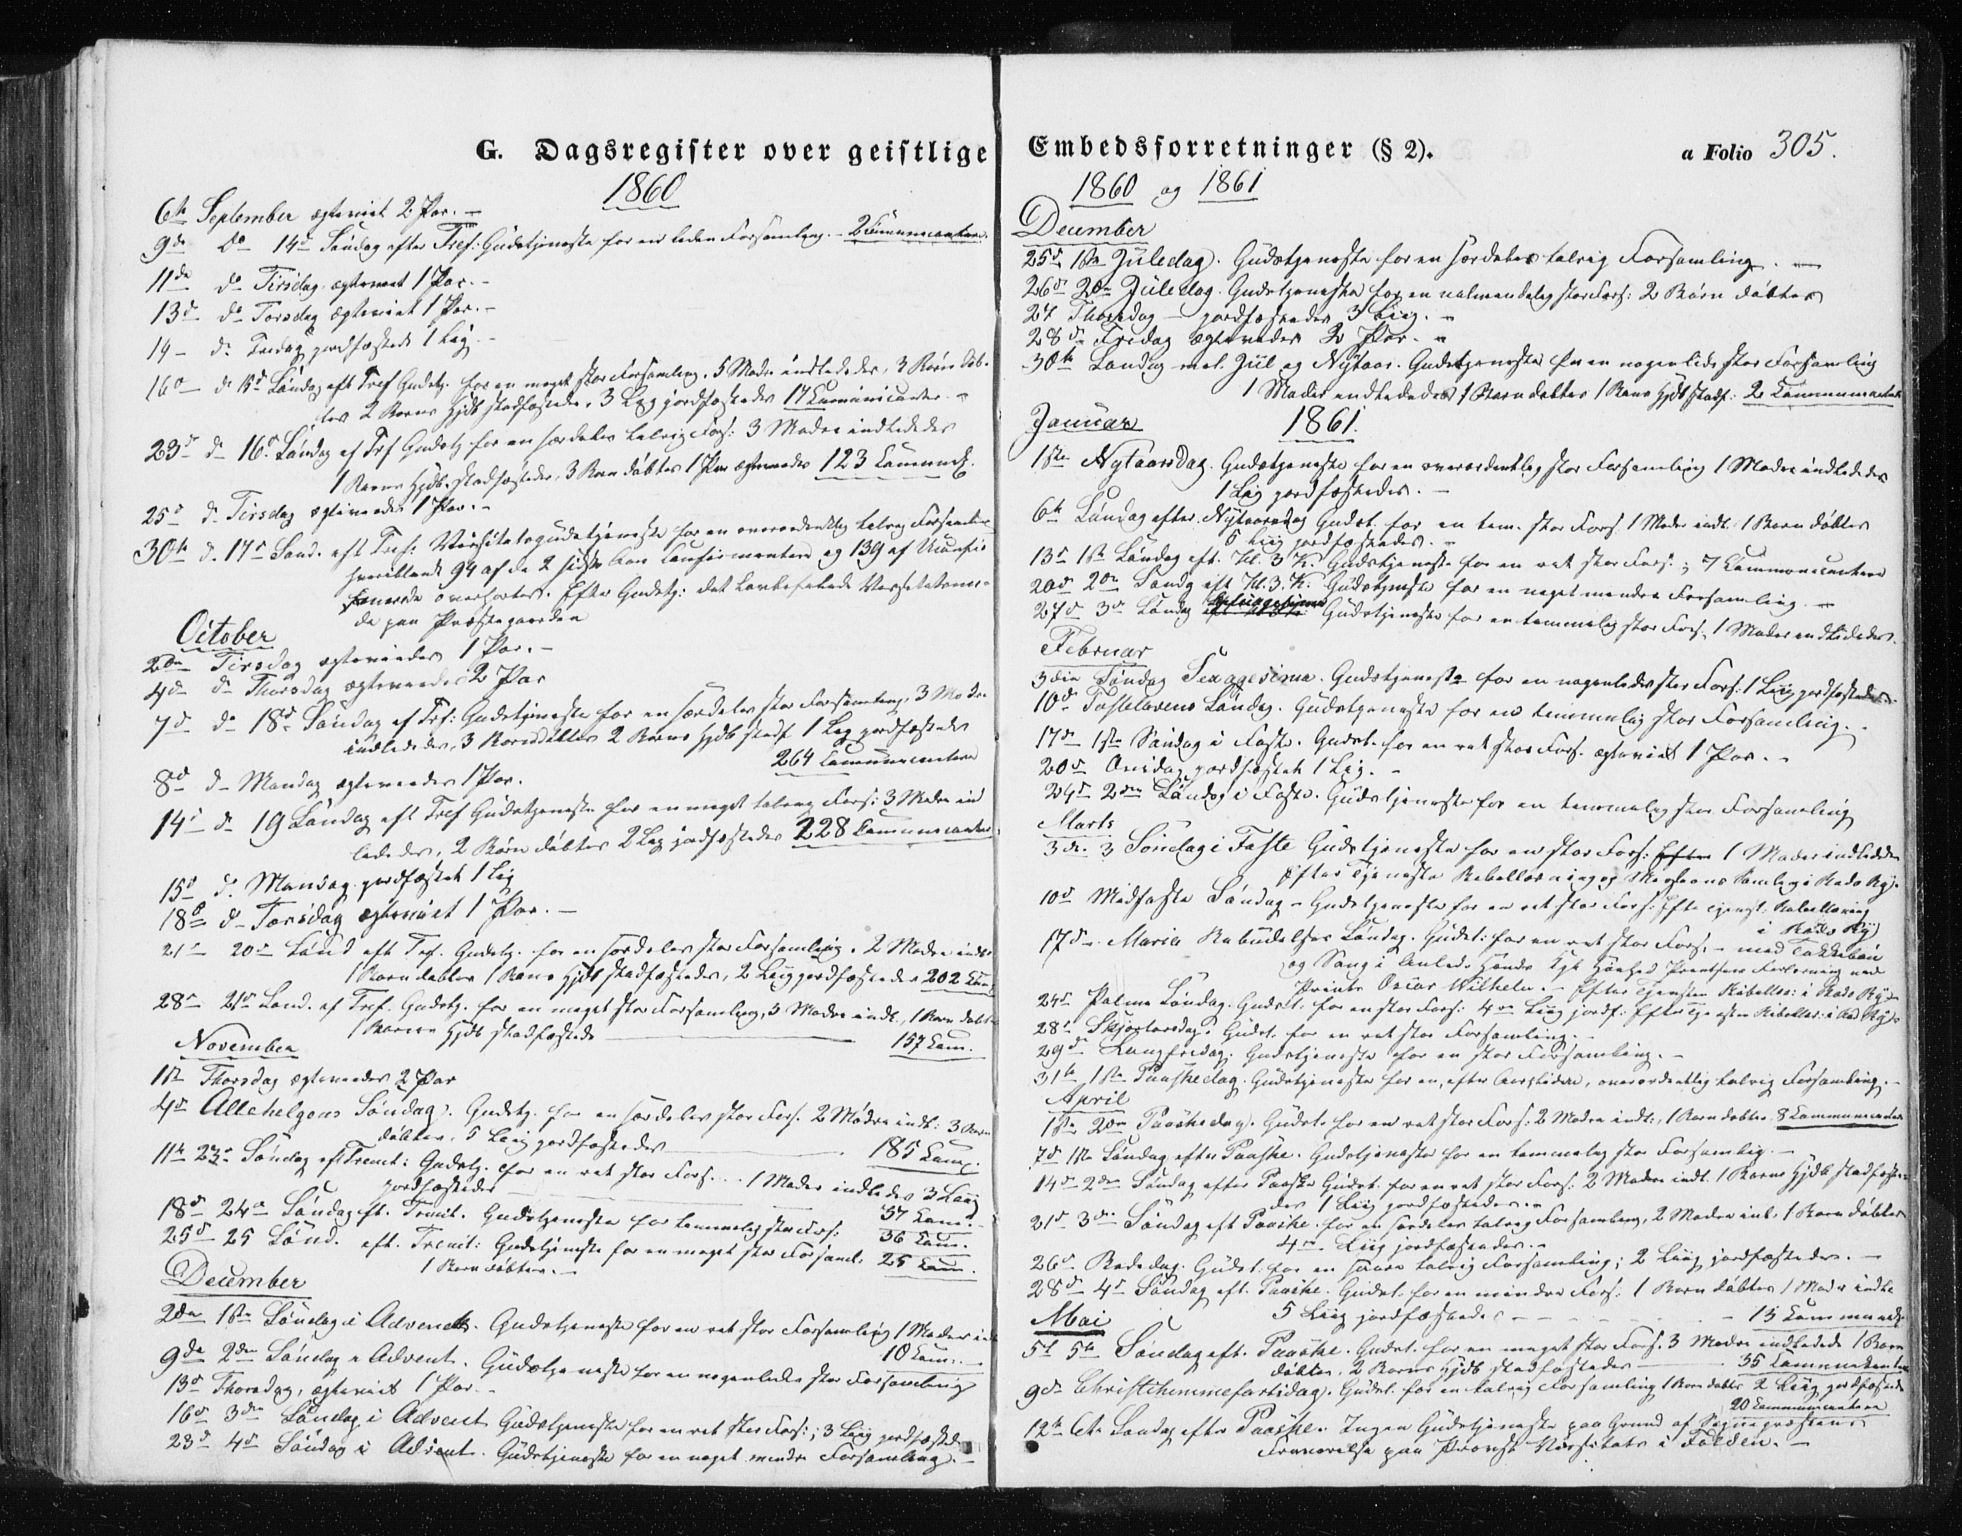 G. Dagsregister over geistlige
1860
6te September ægteviet 2 Par. –
9de do 14de Søndag efter Tref: Gudstjeneste for en liden Forsamling. – 2 Communicantere.
11de do Tirsdag ægteviet 1 Par. –
13de do Torsdag ægteviet 1 Par. –
do Fredag jordfæstede 1 Lig. –
16de do 15de Søndag eft Tref Gudstj. for en meget stor Forsamling. 5 Mødre indlededes, 3 Børn døb-
tes 2 Børns Hjdb stadfæstede, 3 Lig jordfæstedes 17 Communicanter. –
23de do 16de Søndag ef Trf Gudstj for en særdeles talrig Fors: 3 Mødre indlededes
1 Barns Hjdb. stadfæstedes, 3 Børn døbtes 1 Par ægteviedes 123 Communic.
25de do Tirsdag ægteviedes 1 Par. –
30te d. 17de Sønd. eft Tref: Visitatsgudstjeneste for en overordentlig talrig Forsamling
hvoriblandt 94 af de 2 sidste Aars Confirmantere og 139 af Uconfir-
merede overhørtes. Efter Gudstj: det
de paa Præstegaarden
October
2den Tirsdag ægteviedes 1 Par. –
4de do Thorsdag ægteviedes 2 Par
7de do 18de Søndag ef Trf: Gudstjeneste for en særdeles stor Forsamling, 3 Mødre
indlededes, 3 Børn døbtes 2 Børns Hjdb stadf 1 Lig jordfæstedes
264 Communicantere
8de do Mandag ægteviedes 1 Par.
14de do 19 Søndag eft Tref Gudstjeneste for en meget talrig Fors: 3 Mødre ind
lededes, 2 Børn døbtes 2 Lig jordfæstedes 228 Communicantere.
15de d. Mandag jordfæstet 1 Lig
18de do Torsdag ægteviet 1 Par. –
21de 20de Sønd eft Tref. Gudstj. for en særdeles stor Forsamling. 2 Mødre indl.
1 Barn døbtes 1 Barns Hjdb stadfæstedes, 2 Liig jordfæstedes 202 Com.
28de 21de Sønd. ef Tref. Gudstj. for en meget stor Forsamling, 3 Mødre indl., 1 Barn døbtes
1 Barns Hjdb stadfæstedes 157 Com.
November
1ste Thorsdag ægteviedes 2 Par
4de Allehelgens Søndag. Gudstj. for en særdeles stor Fors. 2 Mødre indl: 3 Børn
døbtes. 5 Liig jordfæstedes 185 Com.
11te 23de Søndag eft Trinit: Gudstj. for en ret stor Fors. 1 Moder indledes 3 Liig
jordfæstedes 37 Com.
18de 24de Søndag eft. Trinit. Gudstjeneste for temmelig stor Fors: 36 Com.
25de 25 Sønd. eft. Trinit: Gudstjeneste for en meget stor Forsaml. 25 Com.
1 Barn døbtes. –
December
2den 1ste Søndag i Advent. Gudstjeneste for en ret stor Forsamling 1 Moder indl
10 Com. –
9de 2den Søndag i Advent. Gudstjeneste for en nogenledes stor Forsamling
13de Thorsdag, ægteviet 1 Par. –
16de 3die Søndag i Advent Gudstjeneste for en ret stor Fors:; 3 Liig jordfæstede
23de 4de Søndag i Advent. Gudstjeneste for en noget mindre Forsamling. –
Embedsforretninger (§ 2).
a Folio 305.
1860 og 1861
December
25de 1ste Juledag. Gudstjeneste for en særdeles talrig Forsamling. –
26de 2den Juledag. Gudstjeneste for en stor Fors: 2 Børn døbtes
27 Thorsdag – jordfæstedes 3 Liig. –
28de Fredag ægteviedes 2 Par. –
30te Søndag mel. Jul og Nytaar. Gudstjeneste for en nogenledes stor Forsamling
1 Moder indlededes 1 Barn døbtes 1 Barns Hjdb stadf: 2 Communicantere
Januar 1861.
1ste Nytaarsdag. Gudstjeneste for en overordentlig stor Forsamling 1 Moder indlededes
1 Liig jordfæstedes. –
6te Søndag efter Nytaarsdag Gudst. for en tem. stor Fors. 1 Moder indl. 1 Barn døbtes
5 Liig jordfæstedes. –
13de 1ste Søndag eft. Hl. 3 K. Gudstjeneste for en ret stor Fors.; 7 Communicantere
20de 2den Søndg eft Hl. 3. K. Gudstjeneste for en noget mindre Forsamling. –
27de 3de Søndag Gudstjeneste for en temmelig stor Fors., 1 Moder indlededes.
Februar
3die Søndag Sexagesima. Gudstjeneste for en nogenledes stor Fors: 1 Liig jordfæstedes.
10de Fastelavens Søndag. Gudstjeneste for en temmelig stor Forsamling. –
17de 1ste Søndag i Faste. Gudst. for en ret stor Fors. ægteviet 1 Par. –
20de Onsdag jordfæstet 1 Lig. –
24de 2den Søndag i Faste. Gudstjeneste for en temmelig stor Forsamling
Marts
3die 3 Søndag i Faste Gudstjeneste for en stor Fors: Efter 1 Moder indlededes
Efter Tjeneste Bibellæsning og Missions Samling i Røds Ky.
10de Midfaste Søndag – Gudstjeneste for en ret stor Fors: Efte tjenst. Bibellæsning
i Røds Ky.
17de Maria Bebudelses Søndag. Gudst: for en ret stor Fors. – med Takkebøn
og Sang i Anled. Hendes Kgl Høihed Prinsesses Forløsning med
Prints Oscar Wilhelm. – Efter Tjensten Bibellæs: i Røds Ky. –
24de Palme Søndag. Gudst. for en stor Fors: 4re Liig jordf: Efter Tjensten Bibellæs: i Røds Ky.
28de Skjærtorsdag. Gudst. for en ret stor Forsamling. –
29de Langfredag. Gudstjeneste for en stor Forsamling. –
31te 1ste Paaskedag. Gudstjeneste for en, efter Aarstiden, overordentlig talrig Forsamling. –
April
1ste 2den Paaskedag. Gudst. for en ret stor Fors: 2 Mødre indl., 1 Barn døbtes. 8 Communicantere
7de 1ste Søndag efter Paaske. Gudstjeneste for en temmelig stor Forsamling. –
14de 2den Søndag efter Paaske Gudst. for en ret stor Fors. 2 Mødre indl. 1 Barns Hjdb stadfæste-
des 1 Liig jordfæstedes. –
21de 3die Søndag eft Paaske. for en særdeles talrig Forsamling, 2 Mødre indl. 1 Barn døbtes
4re Liig jordfæstedes. –
26de Bededag. Gudst. for en svær talrig Forsamling; 2 Liig jordfæstedes. –
28de 4de Søndag eft. Paaske. Gudst. for en mindre Fors: 1 Barn døbtes 1 Moder indl.
5 Liig jordfæstedes – – – 13 Communic.
Mai
5te 5te Søndag eft. Paaske. Gudst. for en meget stor Fors. 3 Mødre indledede 1 Barn
døbtes. 2 Børns Hjdb stadfæstedes – 35 Communicantere
9de Christi himmelfartsdag. Gudst. for en talrig Forsamling 1 Barn døbtes 2 Liig jordfæstede
20 Communicantere
12te 6te Søndag efter Paaske. Ingen Gudstjeneste paa Grund af Sognepræstens
Fraværelse paa Provste Visitats i Folden. –